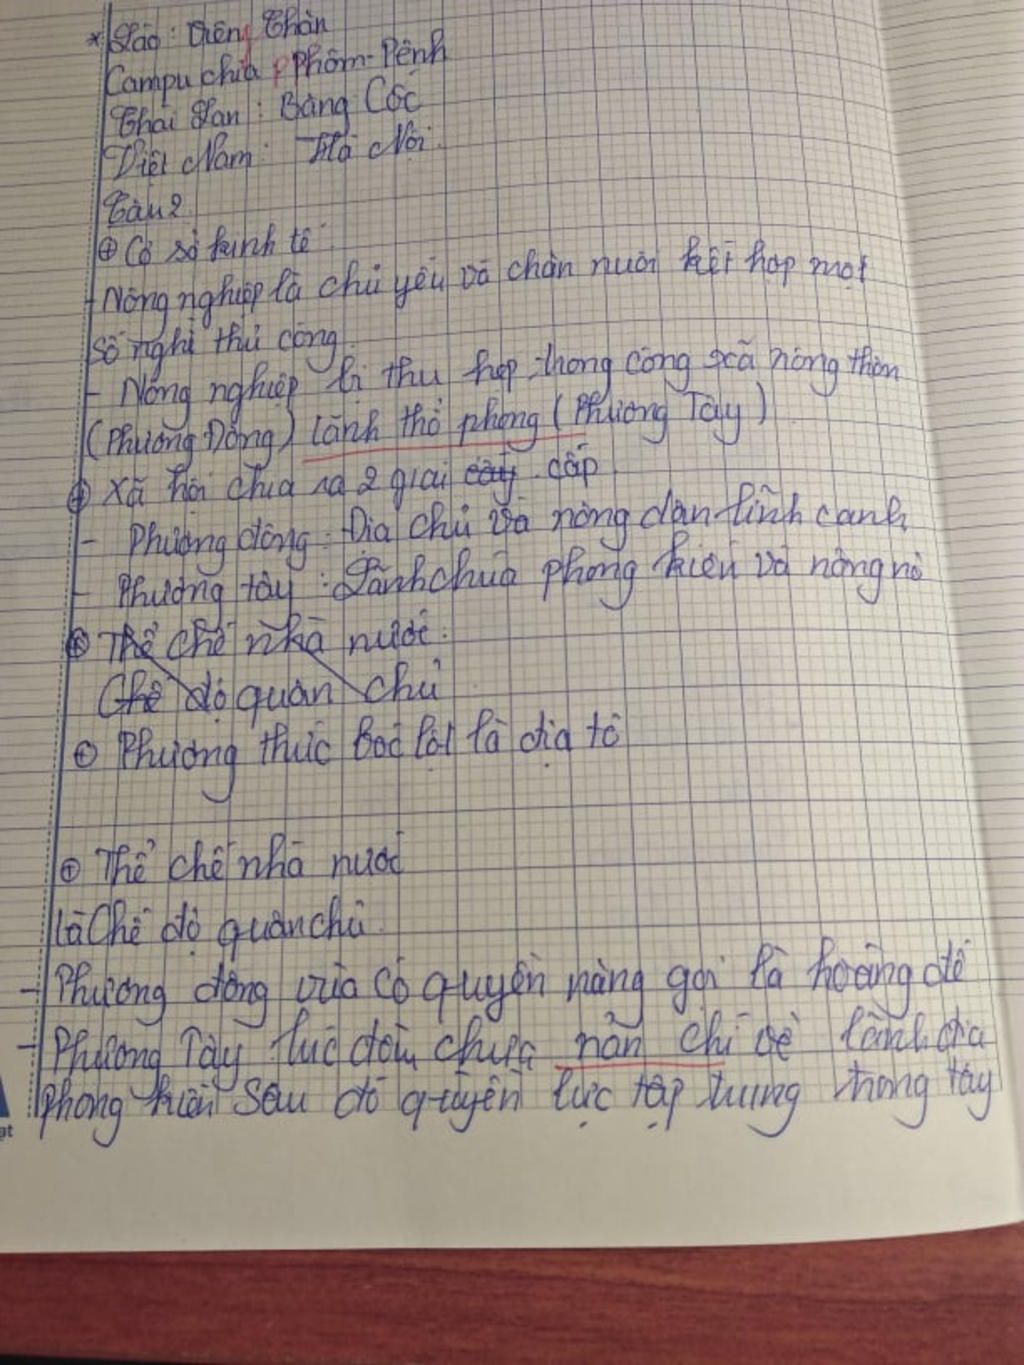 * Lào : Viêng Chăn
Campuchia : Phôm-Pênh
Thái Lan : Băng Cốc
Việt Nam : Hà Nội.
Câu 2
⊕ Cơ sở kinh tế :
- Nông nghiệp là chủ yếu và chăn nuôi kết hợp một
số nghề thủ công.
- Nông nghiệp bị thu hẹp trong công xã nông thôn
(Phương Đông) lãnh thổ phong (Phương Tây)
⊕ Xã hội chia ra 2 giai cấp cấp
- Phương đông : Địa chủ và nông dân lĩnh canh
- Phương tây : Lãnh chúa phong kiến và nông nô
⊕ Thể chế nhà nước :
Chế độ quân chủ
⊕ Phương thức bóc lột là địa tô
⊕ Thể chế nhà nước
là chế độ quân chủ.
- Phương đông vua có quyền năng gọi là hoàng đế
- Phương Tây lúc đầu chưa nản chí để lãnh địa
phong kiến sau đó quyền lực tập trung trong tay